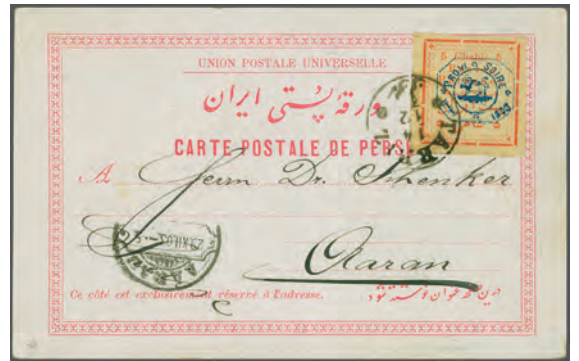 UNION POSTALE UNIVERSELLE
ورقهٔ پستی ایران
CARTE POSTALE DE PERSE
A Herrn Dr. Schenker
Aarau
Ce côté est exclusivement réservé à l'adresse.
5 Chahis 5
PROVISOIRE
1903
TABRIZ
AARAU
23.XII.03